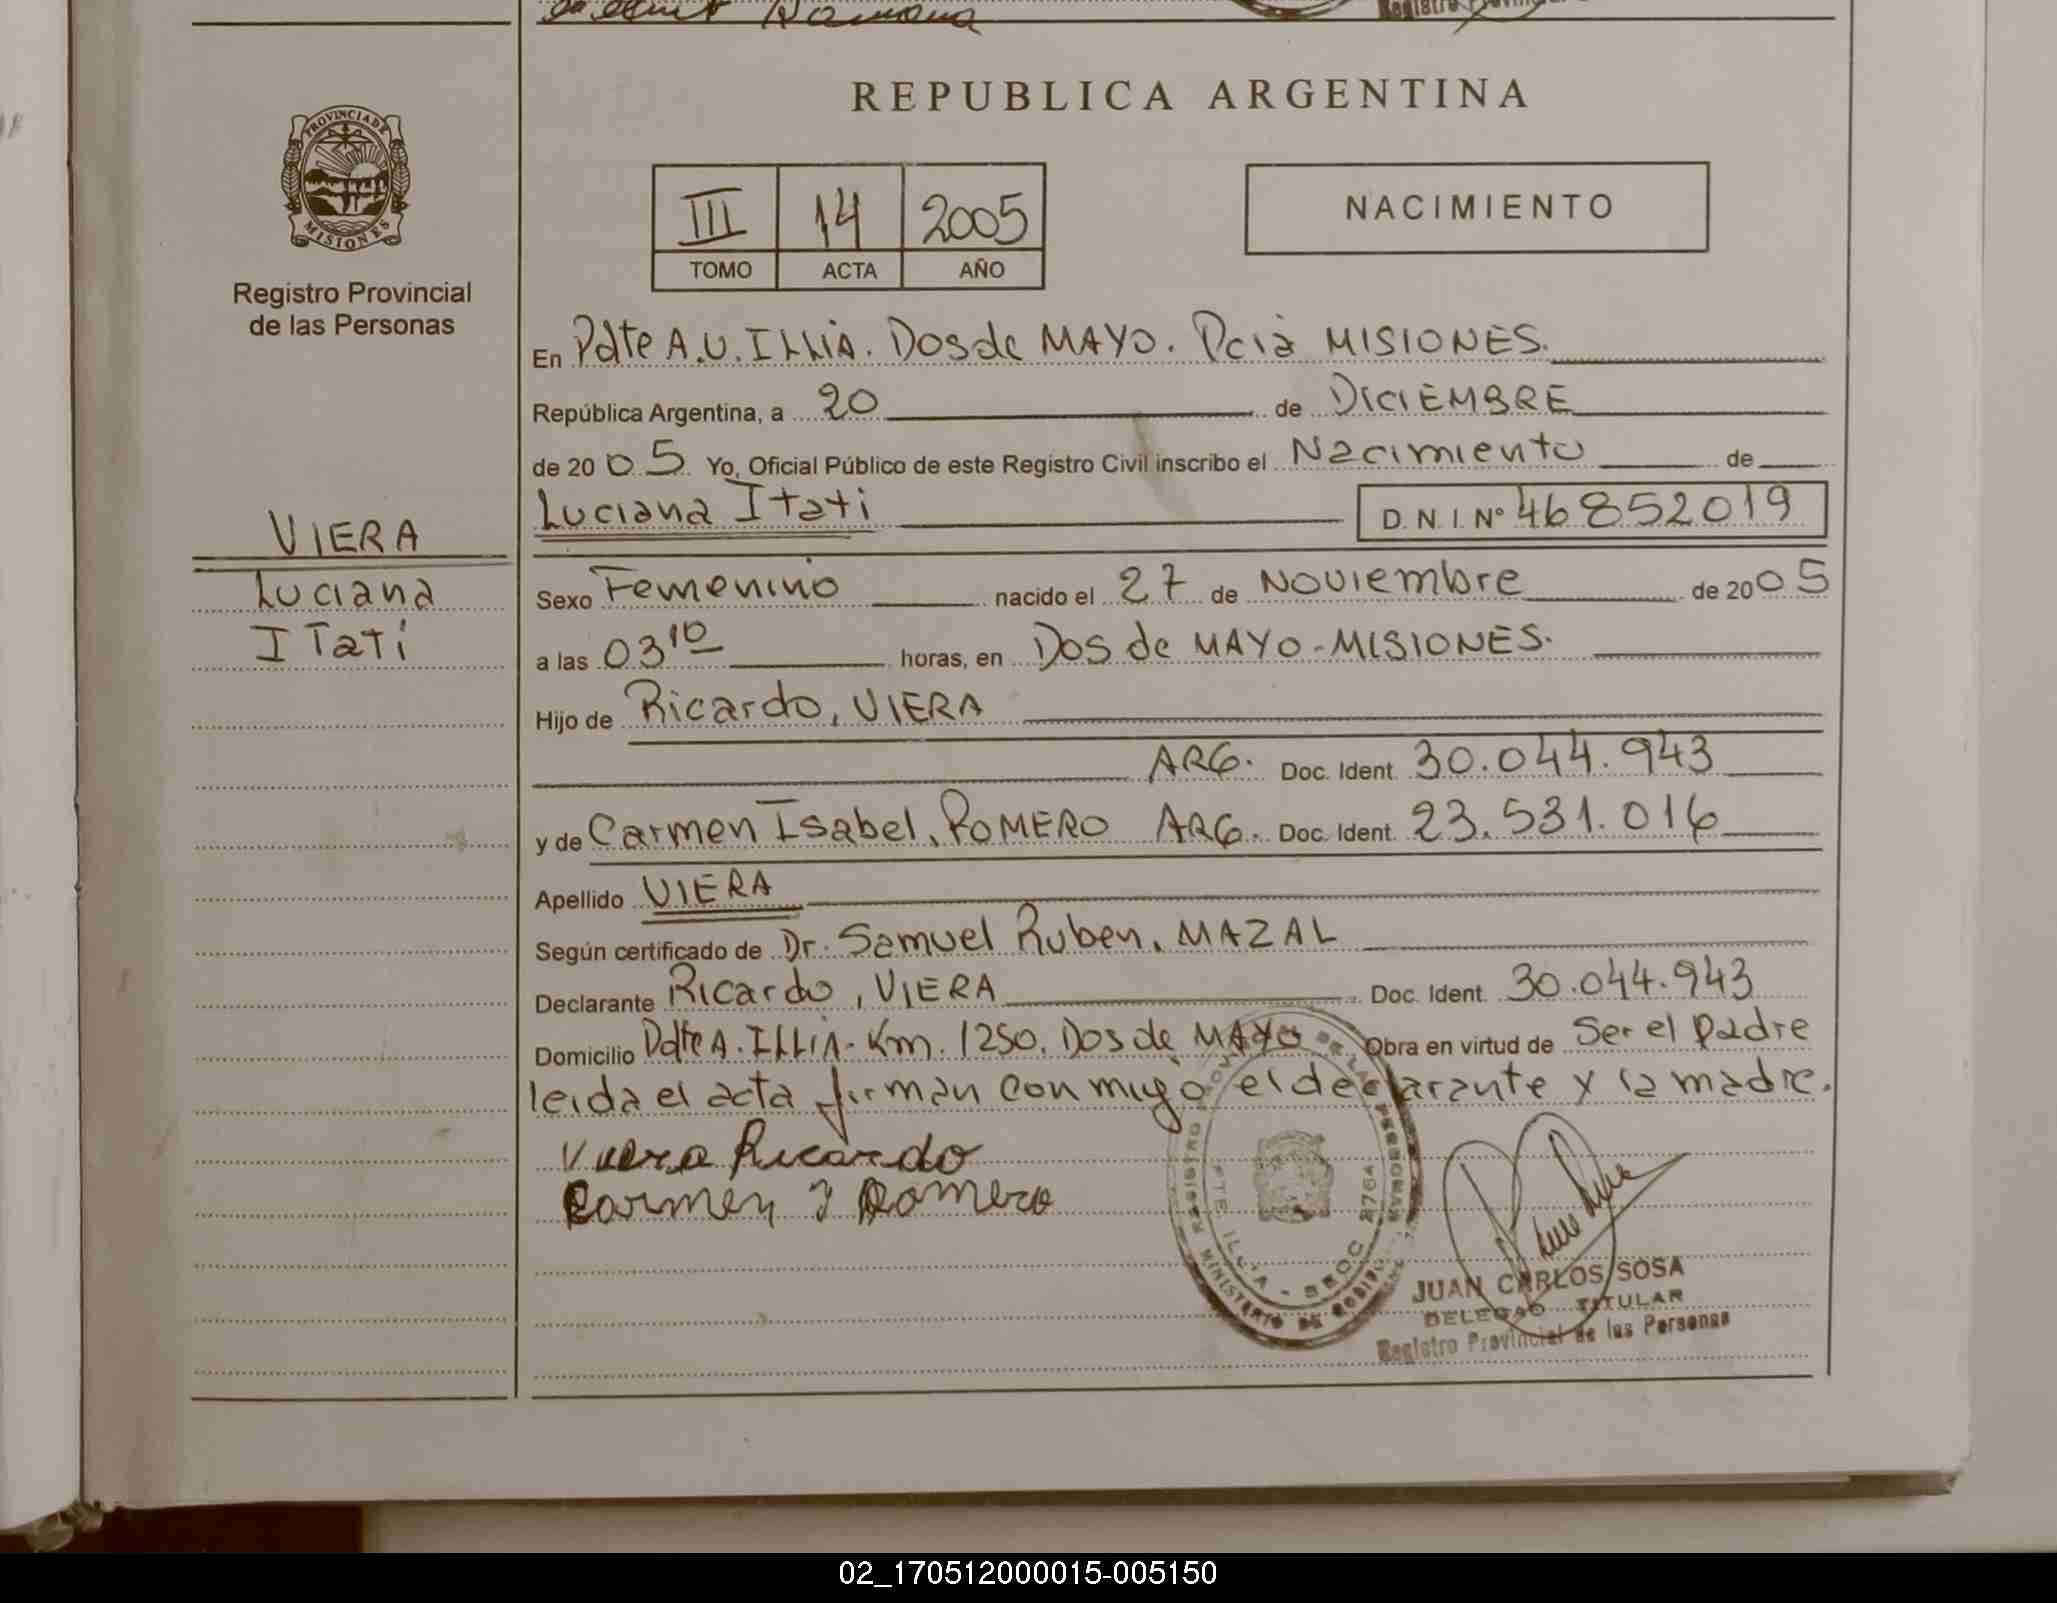 REPUBLICA ARGENTINA
PROVINCIA DE
MISIONES
Registro Provincial
de las Personas
III 14 2005
TOMO ACTA AÑO
NACIMIENTO
En Pdte A.U. ILLIA. Dos de MAYO. Pcia MISIONES.
República Argentina, a 20 de DICIEMBRE
de 2005 Yo, Oficial Público de este Registro Civil inscribo el Nacimiento de
Luciana Itati D.N.I. Nº 46852019
VIERA
Luciana
ITati
Sexo Femenino nacido el 27 de Noviembre de 2005
a las 03 10 horas, en Dos de MAYO - MISIONES.
Hijo de Ricardo, VIERA
ARG. Doc. Ident. 30.044.943
y de Carmen Isabel, ROMERO ARG. Doc. Ident. 23.531.016
Apellido VIERA
Según certificado de Dr. Samuel Ruben, MAZAL
Declarante Ricardo, VIERA Doc. Ident. 30.044.943
Domicilio Pdte A. ILLIA - Km. 1250. Dos de MAYO Obra en virtud de Ser el Padre
leida el acta firman con migo el declarante y la madre.
Viera Ricardo
Carmen I Romero
JUAN CARLOS SOSA
DELEGAO TITULAR
Registro Provincial de las Personas
02_170512000015-005150